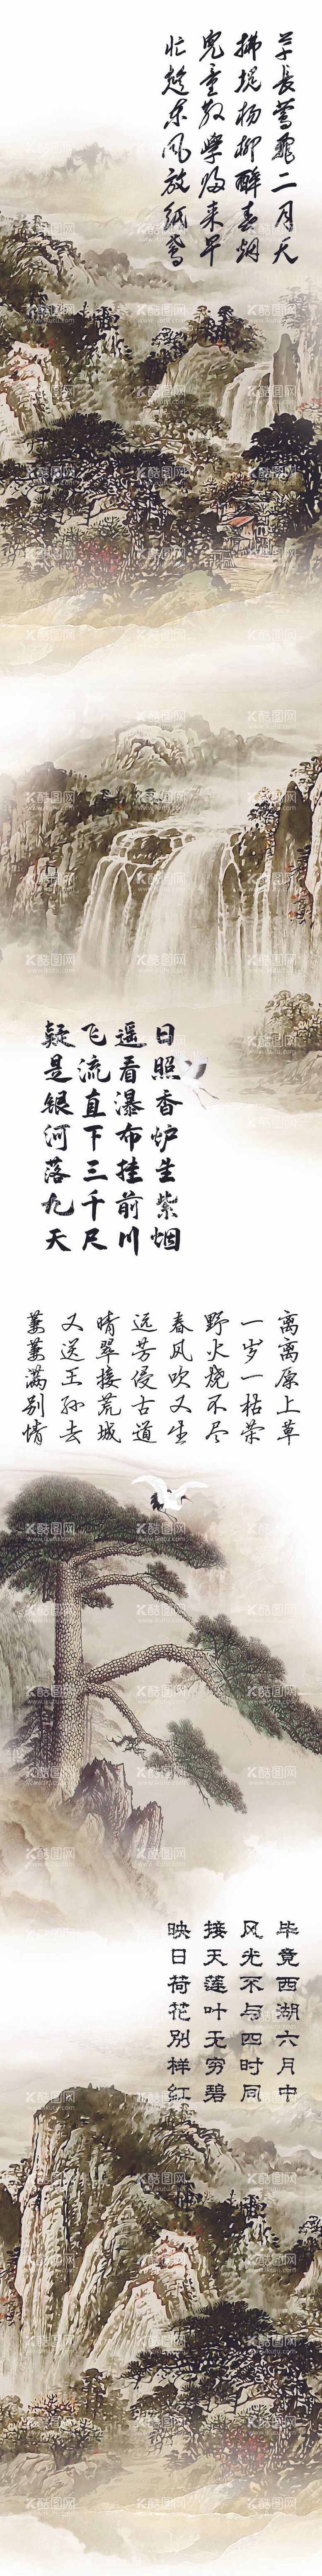 草長鶯飛二月天
拂堤杨柳醉春烟
兒童散學归来早
忙趁东风放紙鳶
日照香炉生紫烟
遥看瀑布挂前川
飞流直下三千尺
疑是银河落九天
离离原上草
一岁一枯荣
野火烧不尽
春风吹又生
远芳侵古道
晴翠接荒城
又送王孙去
萋萋满别情
毕竟西湖六月中
风光不与四时同
接天莲叶无穷碧
映日荷花别样红
酷图网
www.ikutu.com